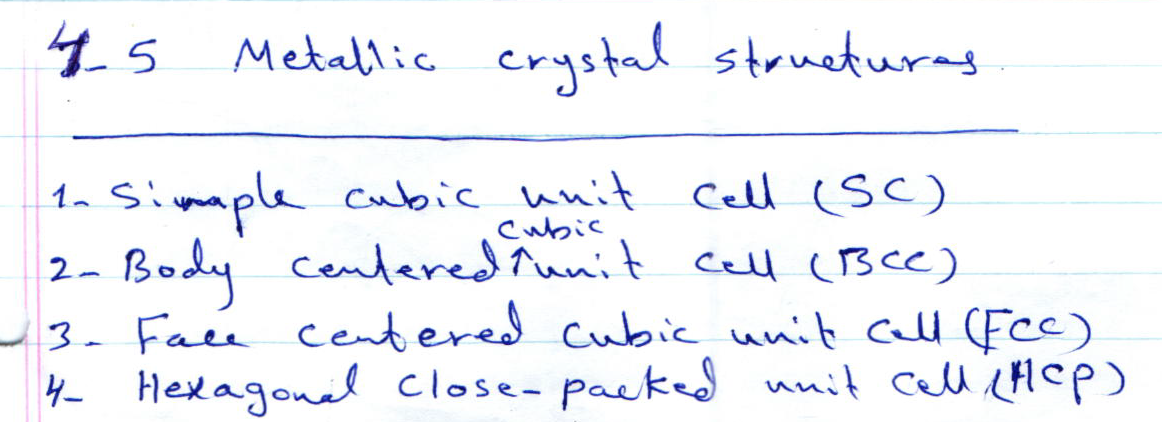 4-5 Metallic crystal structures
1- Simaple cubic unit cell (SC)
cubic
2- Body centered↑unit cell (BCC)
3- Face centered cubic unit cell (FCC)
4- Hexagonal close-packed unit cell (HCP)